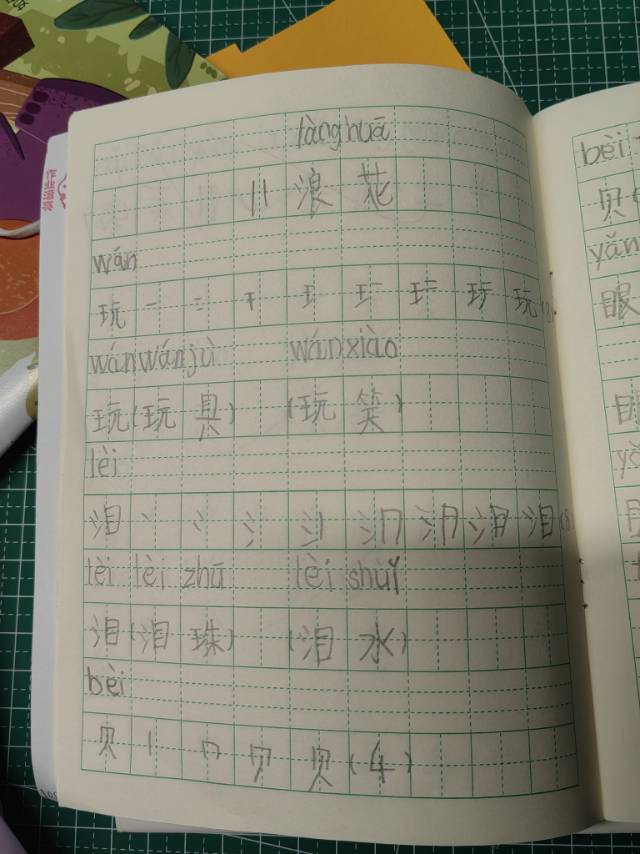 làng huā
11 浪 花
wán
玩 一 二 干 王 玩 (8)
wán wán jù wán xiào
玩 (玩 具) (玩 笑)
lèi
泪 丶 冫 氵 泪 (8)
lèi lèi zhū lèi shuǐ
泪 (泪 珠) (泪 水)
bèi
贝 丨 冂 贝 (4)
bèi
贝 (
yǎn
眼